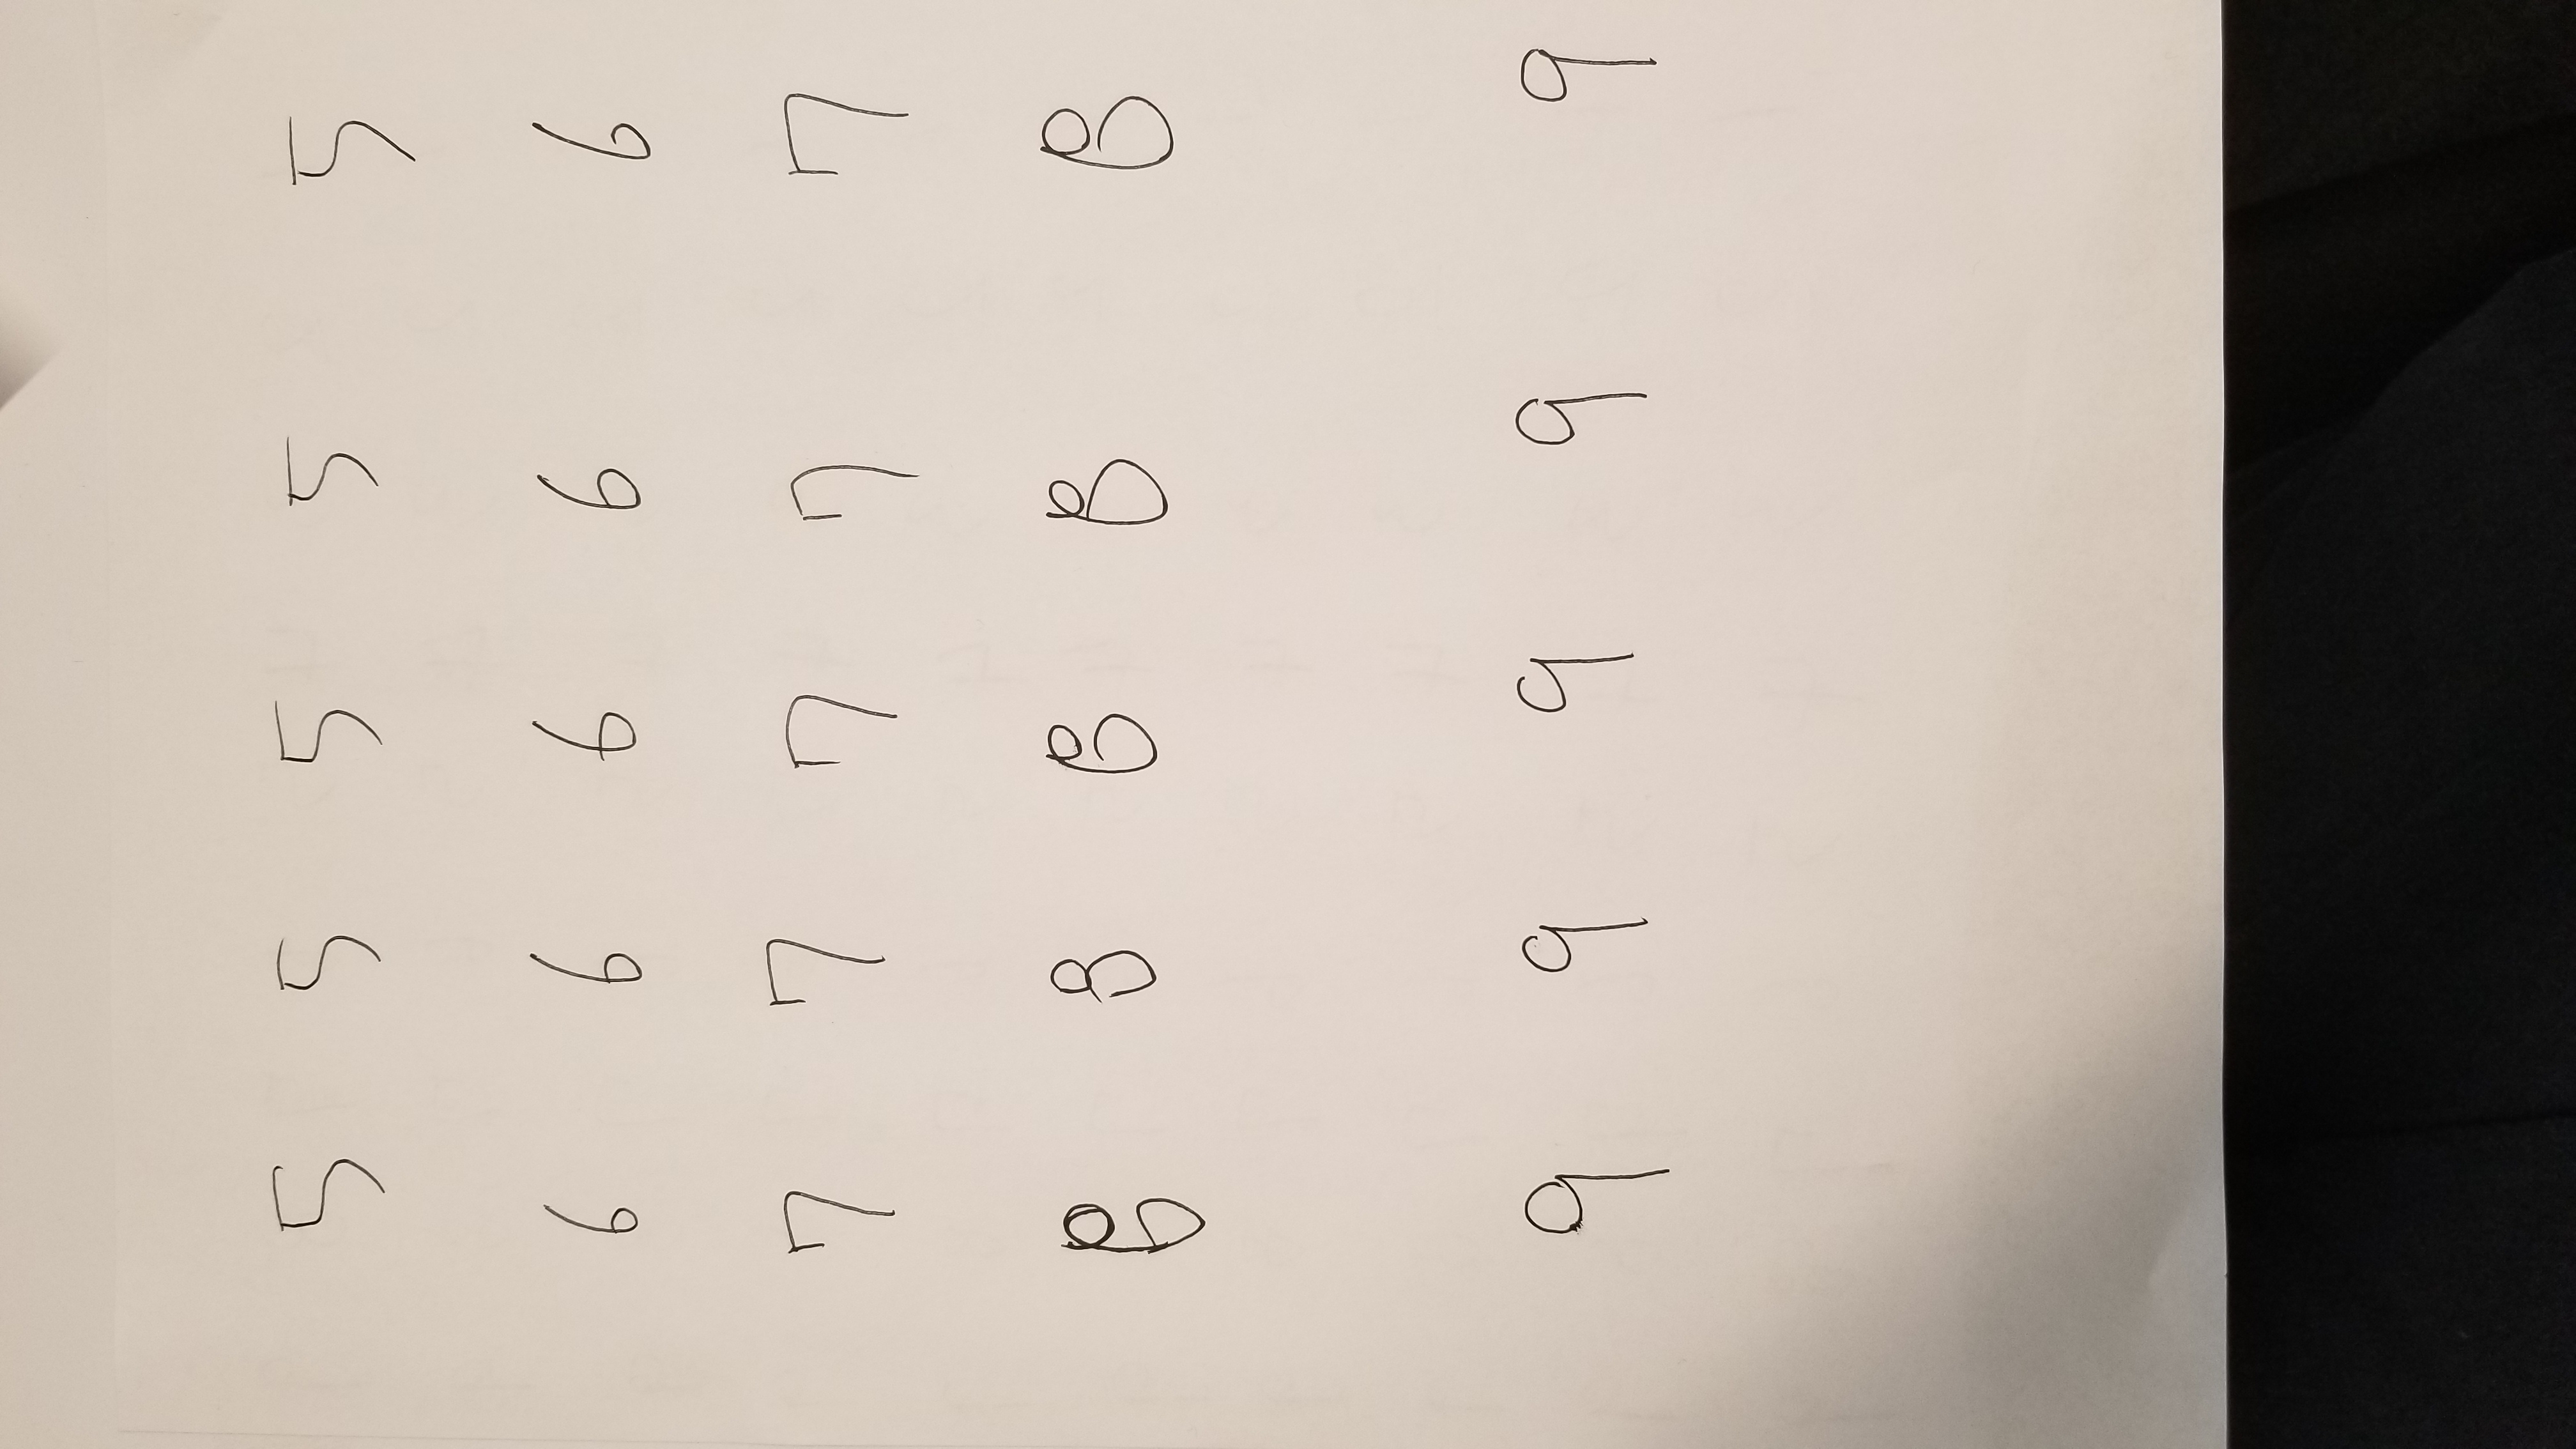 5 5 5 5 5
6 6 6 6 6
7 7 7 7 7
8 8 8 8 8
9 9 9 9 9